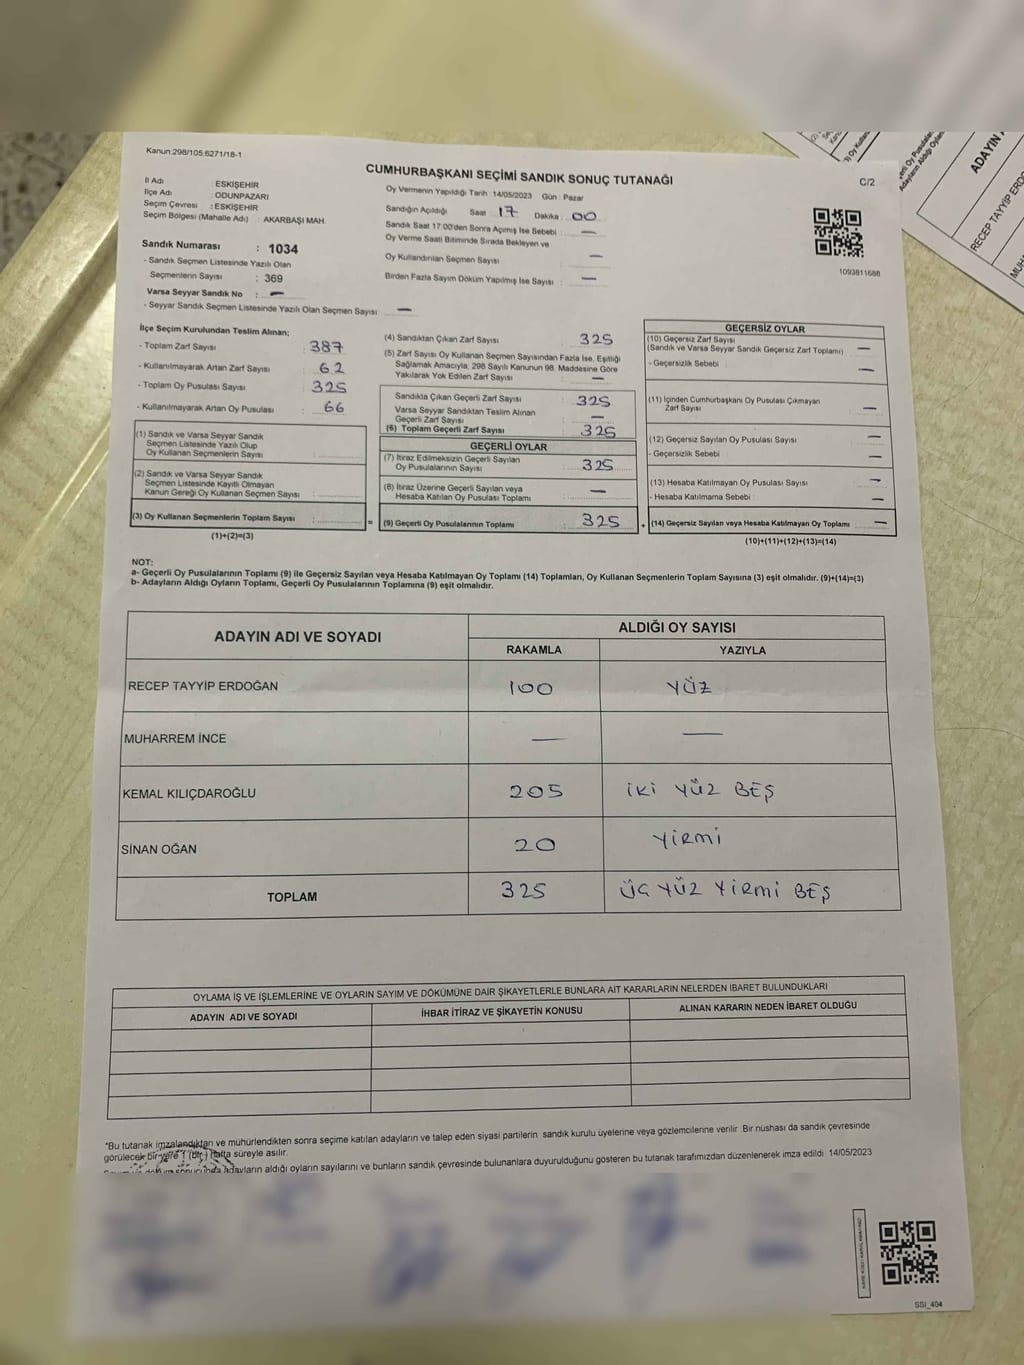 Kanun:298/105:6271/18-1
CUMHURBAŞKANI SEÇİMİ SANDIK SONUÇ TUTANAĞI
C/2
İl Adı : ESKİŞEHİR
İlçe Adı : ODUNPAZARI
Seçim Çevresi : ESKİŞEHİR
Seçim Bölgesi (Mahalle Adı) : AKARBAŞI MAH.
Sandık Numarası : 1034
- Sandık Seçmen Listesinde Yazılı Olan
Seçmenlerin Sayısı : 369
Varsa Seyyar Sandık No : —
- Seyyar Sandık Seçmen Listesinde Yazılı Olan Seçmen Sayısı : —
Oy Vermenin Yapıldığı Tarih :14/05/2023 Gün : Pazar
Sandığın Açıldığı Saat 17 Dakika : 00
Sandık Saat 17:00'den Sonra Açmış İse Sebebi : —
Oy Verme Saati Bitiminde Sırada Bekleyen ve
Oy Kullandırılan Seçmen Sayısı : —
Birden Fazla Sayım Döküm Yapılmış İse Sayısı : —
1093811688
İlçe Seçim Kurulundan Teslim Alınan;
- Toplam Zarf Sayısı : 387
- Kullanılmayarak Artan Zarf Sayısı : 62
- Toplam Oy Pusulası Sayısı : 325
- Kullanılmayarak Artan Oy Pusulası : 66
(1) Sandık ve Varsa Seyyar Sandık
Seçmen Listesinde Yazılı Olup
Oy Kullanan Seçmenlerin Sayısı :
(2) Sandık ve Varsa Seyyar Sandık
Seçmen Listesinde Kayıtlı Olmayan
Kanun Gereği Oy Kullanan Seçmen Sayısı :
(3) Oy Kullanan Seçmenlerin Toplam Sayısı :
(1)+(2)=(3)
(4) Sandıktan Çıkan Zarf Sayısı : 325
(5) Zarf Sayısı Oy Kullanan Seçmen Sayısından Fazla İse, Eşitliği
Sağlamak Amacıyla, 298 Sayılı Kanunun 98. Maddesine Göre
Yakılarak Yok Edilen Zarf Sayısı : —
Sandıkta Çıkan Geçerli Zarf Sayısı : 325
Varsa Seyyar Sandıktan Teslim Alınan
Geçerli Zarf Sayısı : —
(6) Toplam Geçerli Zarf Sayısı : 325
GEÇERLİ OYLAR
(7) İtiraz Edilmeksizin Geçerli Sayılan
Oy Pusulalarının Sayısı : 325
(8) İtiraz Üzerine Geçerli Sayılan veya
Hesaba Katılan Oy Pusulası Toplamı : —
= (9) Geçerli Oy Pusulalarının Toplamı : 325
GEÇERSİZ OYLAR
(10) Geçersiz Zarf Sayısı
(Sandık ve Varsa Seyyar Sandık Geçersiz Zarf Toplamı) —
- Geçersizlik Sebebi : —
(11) İçinden Cumhurbaşkanı Oy Pusulası Çıkmayan
Zarf Sayısı : —
(12) Geçersiz Sayılan Oy Pusulası Sayısı : —
- Geçersizlik Sebebi : —
(13) Hesaba Katılmayan Oy Pusulası Sayısı : —
- Hesaba Katılmama Sebebi : —
+ (14) Geçersiz Sayılan veya Hesaba Katılmayan Oy Toplamı : —
(10)+(11)+(12)+(13)=(14)
NOT:
a- Geçerli Oy Pusulalarının Toplamı (9) ile Geçersiz Sayılan veya Hesaba Katılmayan Oy Toplamı (14) Toplamları, Oy Kullanan Seçmenlerin Toplam Sayısına (3) eşit olmalıdır. (9)+(14)=(3)
b- Adayların Aldığı Oyların Toplamı, Geçerli Oy Pusulalarının Toplamına (9) eşit olmalıdır.
ADAYIN ADI VE SOYADI ALDIĞI OY SAYISI
RAKAMLA YAZIYLA
RECEP TAYYİP ERDOĞAN 100 YÜZ
MUHARREM İNCE — —
KEMAL KILIÇDAROĞLU 205 İKİ YÜZ BEŞ
SİNAN OĞAN 20 YİRMİ
TOPLAM 325 ÜÇ YÜZ YİRMİ BEŞ
OYLAMA İŞ VE İŞLEMLERİNE VE OYLARIN SAYIM VE DÖKÜMÜNE DAİR ŞİKAYETLERLE BUNLARA AİT KARARLARIN NELERDEN İBARET BULUNDUKLARI
ADAYIN ADI VE SOYADI İHBAR İTİRAZ VE ŞİKAYETİN KONUSU ALINAN KARARIN NEDEN İBARET OLDUĞU
*Bu tutanak imzalandıktan ve mühürlendikten sonra seçime katılan adayların ve talep eden siyasi partilerin sandık kurulu üyelerine veya gözlemcilerine verilir. Bir nüshası da sandık çevresinde
görülecek bir yere 1 (bir) hafta süreyle asılır.
adayların aldığı oyların sayılarını ve bunların sandık çevresinde bulunanlara duyurulduğunu gösteren bu tutanak tarafımızdan düzenlenerek imza edildi 14/05/2023
SSI_404
ADAYIN
RECEP TAYYİP ERDO
MUH